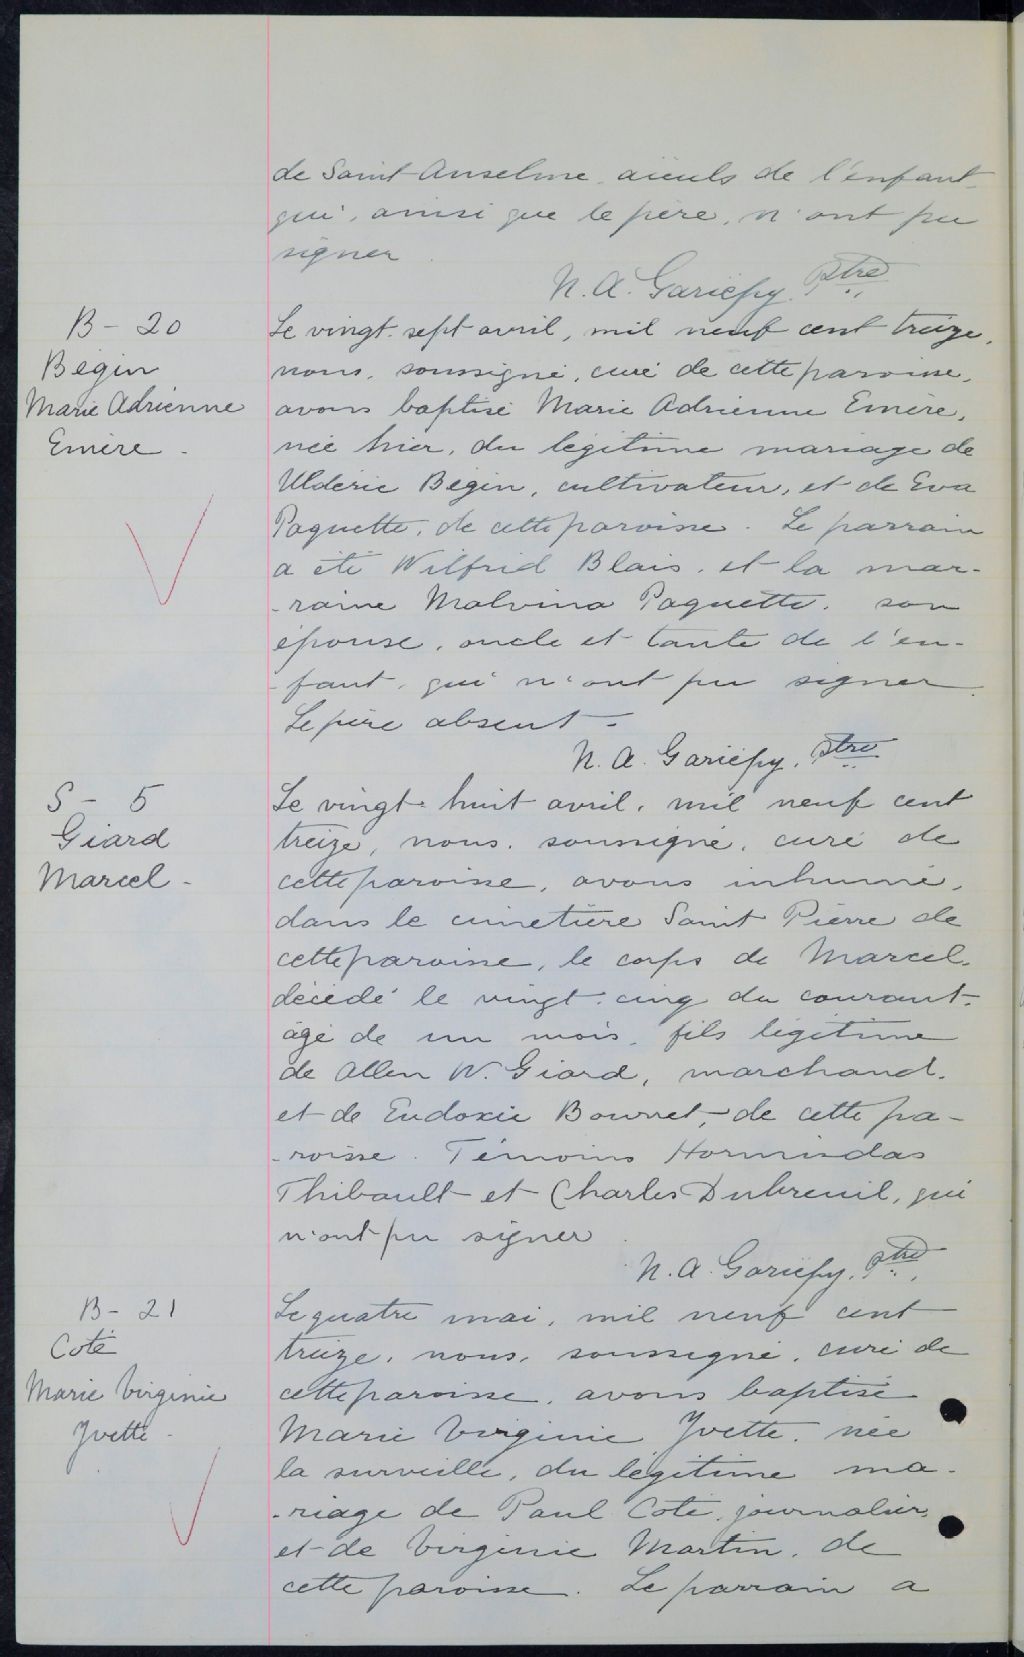 de Saint Anselme, aïeuls de l'enfant
qui, ainsi que le père, n'ont pu
signer.
N. A. Gariépy, Ptre
B - 20
Bégin
Marie Adrienne
Emère -
Le vingt-sept avril, mil neuf cent treize,
nous, soussigné, curé de cette paroisse,
avons baptisé Marie Adrienne Emère,
née hier, du légitime mariage de
Uldéric Bégin, cultivateur, et de Eva
Paquette, de cette paroisse. Le parrain
a été Wilfrid Blais, et la mar-
-raine Malvina Paquette, son
épouse, oncle et tante de l'en-
-fant, qui n'ont pu signer.
Le père absent -
N. A. Gariépy, Ptre
S - 5
Giard
Marcel -
Le vingt-huit avril, mil neuf cent
treize, nous, soussigné, curé de
cette paroisse, avons inhumé,
dans le cimetière Saint Pierre de
cette paroisse, le corps de Marcel,
décédé le vingt-cinq du courant,
âgé de un mois, fils légitime
de Allen W. Giard, marchand,
et de Eudoxie Bourret, de cette pa-
-roisse. Témoins Hormisdas
Thibault et Charles Dubreuil, qui
n'ont pu signer.
N. A. Gariépy, Ptre
B - 21
Coté
Marie Virginie
Yvette -
Le quatre mai, mil neuf cent
treize, nous, soussigné, curé de
cette paroisse, avons baptisé
Marie Virginie Yvette, née
la surveille, du légitime ma-
-riage de Paul Coté, journalier,
et de Virginie Martin, de
cette paroisse. Le parrain a